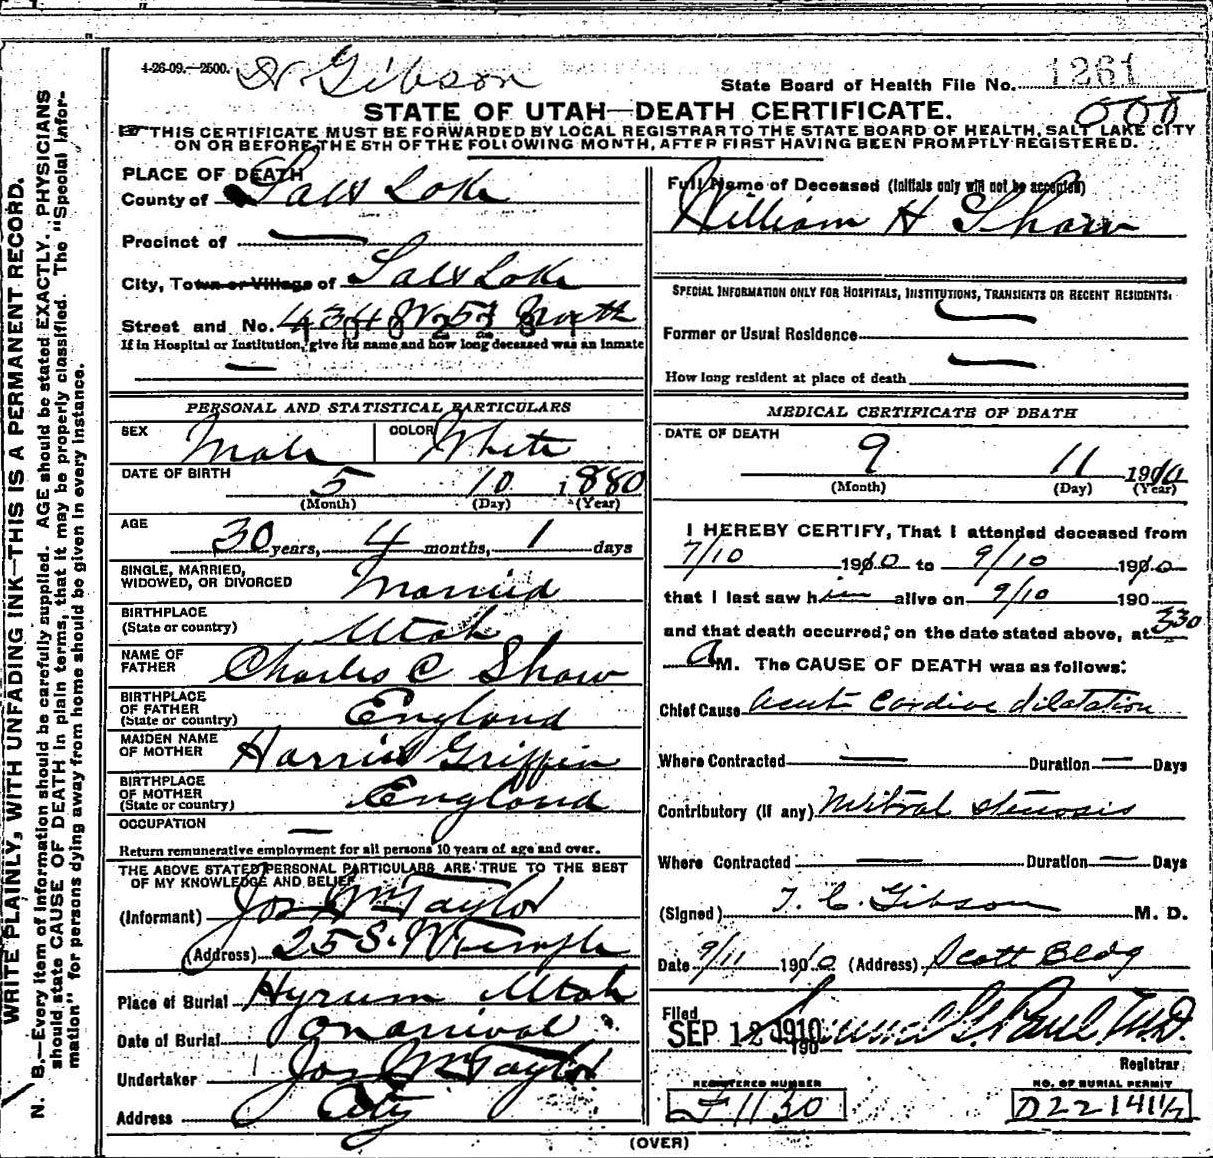 4-26-09.—2500.
Dr Gibson
State Board of Health File No. 1261
STATE OF UTAH—DEATH CERTIFICATE.
THIS CERTIFICATE MUST BE FORWARDED BY LOCAL REGISTRAR TO THE STATE BOARD OF HEALTH, SALT LAKE CITY
ON OR BEFORE THE 5TH OF THE FOLLOWING MONTH, AFTER FIRST HAVING BEEN PROMPTLY REGISTERED.
WRITE PLAINLY, WITH UNFADING INK—THIS IS A PERMANENT RECORD.
N. B.—Every item of information should be carefully supplied. AGE should be stated EXACTLY. PHYSICIANS
should state CAUSE OF DEATH in plain terms, that it may be properly classified. The "Special Infor-
mation" for persons dying away from home should be given in every instance.
PLACE OF DEATH
County of Salt Lake
Precinct of —
City, Town or Village of Salt Lake
Street and No. 434 W 5th North
If in Hospital or Institution, give its name and how long deceased was an inmate
—
PERSONAL AND STATISTICAL PARTICULARS
SEX Male COLOR White
DATE OF BIRTH 5 10 1880
(Month) (Day) (Year)
AGE 30 years, 4 months, 1 days
SINGLE, MARRIED,
WIDOWED, OR DIVORCED Married
BIRTHPLACE
(State or country) Utah
NAME OF
FATHER Charles C Shaw
BIRTHPLACE
OF FATHER
(State or country) England
MAIDEN NAME
OF MOTHER Harriet Griffin
BIRTHPLACE
OF MOTHER
(State or country) England
OCCUPATION —
Return remunerative employment for all persons 10 years of age and over.
THE ABOVE STATED PERSONAL PARTICULARS ARE TRUE TO THE BEST
OF MY KNOWLEDGE AND BELIEF
(Informant) Jos Wm Taylor
(Address) 25 S. W Temple
Place of Burial Hyrum Utah
Date of Burial on arrival
Undertaker Jos Wm Taylor
Address City
Full Name of Deceased (Initials only will not be accepted)
William H Shaw
SPECIAL INFORMATION ONLY FOR HOSPITALS, INSTITUTIONS, TRANSIENTS OR RECENT RESIDENTS.
Former or Usual Residence —
How long resident at place of death —
MEDICAL CERTIFICATE OF DEATH
DATE OF DEATH
9 11 1910
(Month) (Day) (Year)
I HEREBY CERTIFY, That I attended deceased from
7/10 1910 to 9/10 1910
that I last saw him alive on 9/10 190
and that death occurred, on the date stated above, at 330
A M. The CAUSE OF DEATH was as follows:
Chief Cause Acute Cardiac dilatation
Where Contracted — Duration — Days
Contributory (if any) Mitral stenosis
Where Contracted — Duration — Days
(Signed) T. C. Gibson M. D.
Date 9/11 1910 (Address) Scott Bldg
Filed
SEP 12 1910 190 Samuel G. Paul M.D.
Registrar
REGISTERED NUMBER
F 1130
NO. OF BURIAL PERMIT
D22141½
(OVER)